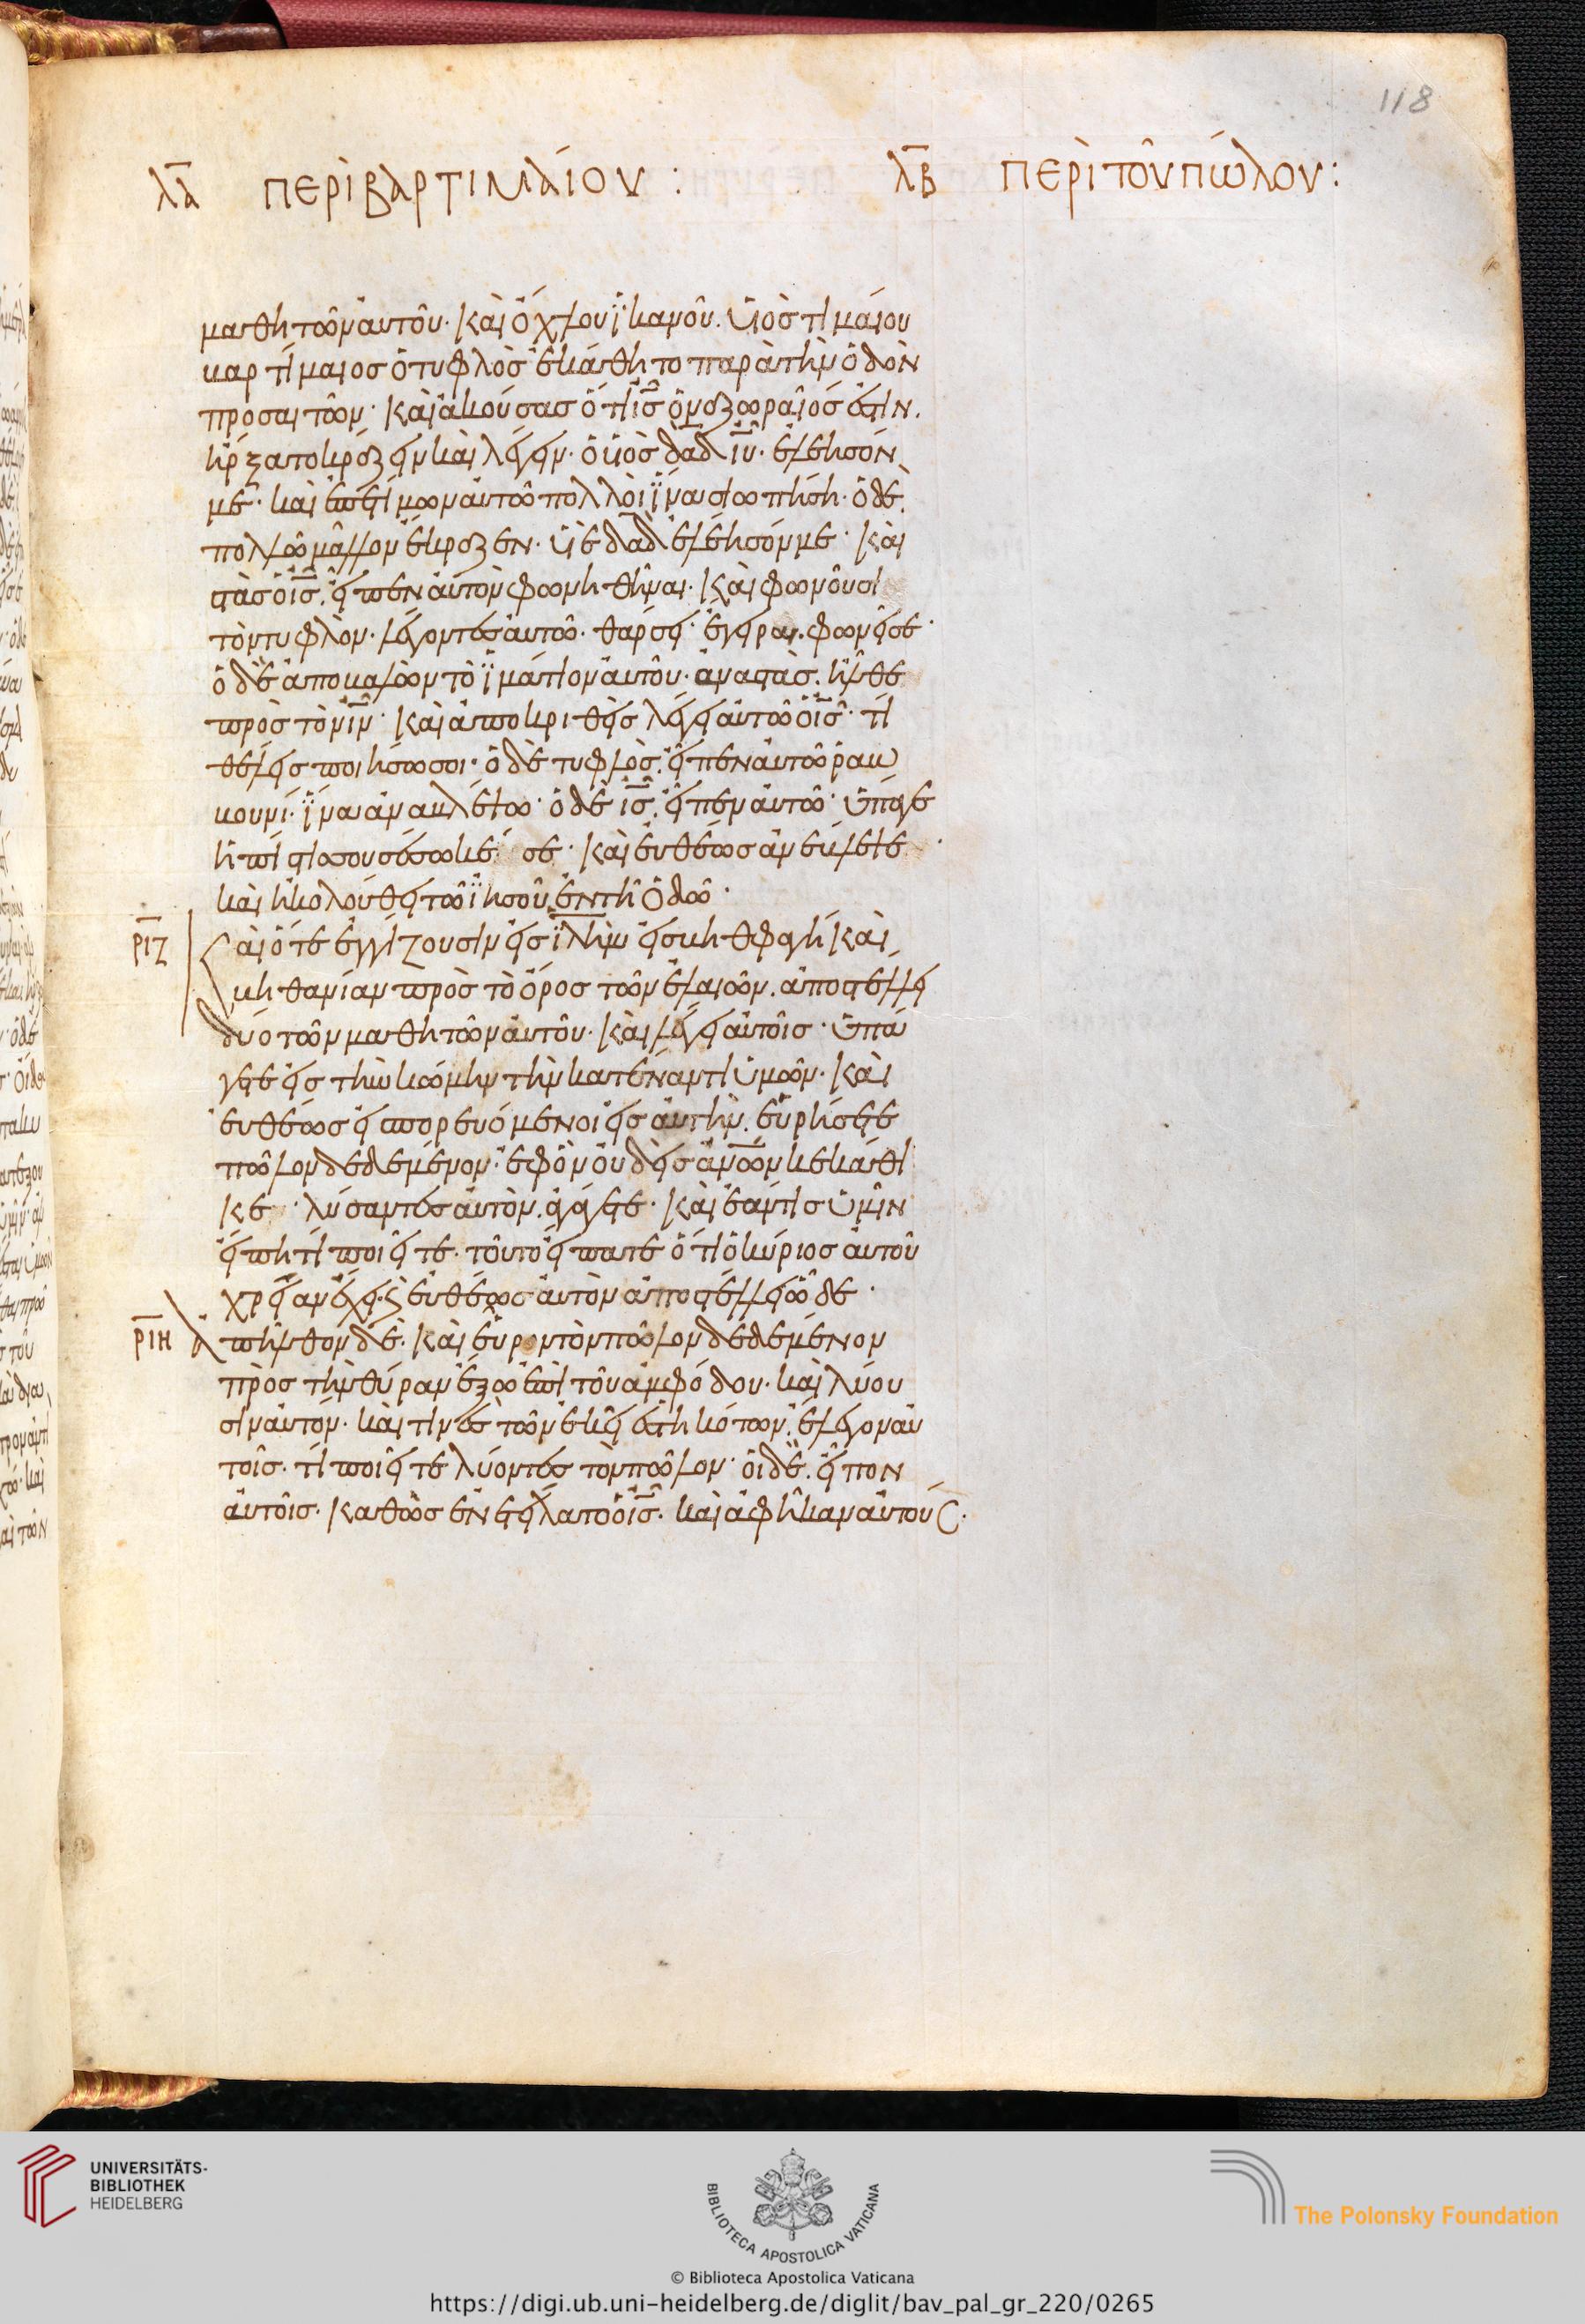 118
λ̅α̅ ΠΕΡῚ ΒΑΡΤΙΜΑΊΟΥ :
λ̅β̅ ΠΕΡῚ ΤΟῦ ΠΏΛΟΥ :
μαθητῶν αὐτοῦ· καὶ ὄχλου ἱκανοῦ. υἱὸσ τιμαίου
βαρτίμαιοσ ὁ τυφλὸσ ἐκάθητο παρὰ τὴν ὁδὸν
προσαιτῶν· καὶ ἀκούσασ ὅτι ι̅σ̅ ὁ ναζωραῖόσ ἐστιν.
ἤρξατο κράζειν καὶ λέγειν· ὁ υἱὸσ δα̅δ̅ ι̅υ̅· ἐλέησόν
με· καὶ ἐπετίμων αὐτῶ πολλοὶ ἵνα σιωπήση· ὁ δὲ
πολλῶ μᾶλλον ἔκραζεν· υἱὲ δα̅δ̅ ἐλέησόν με· καὶ
στὰσ ὁ ι̅σ̅. εἶπεν αὐτὸν φωνηθῆναι· καὶ φωνοῦσι
τὸν τυφλὸν· λέγοντεσ αὐτῶ· θάρσει· ἔγειραι. φωνεῖ σε·
ὁ δὲ ἀποβαλὼν τὸ ἱμάτιον αὐτοῦ· ἀναστὰσ. ἦλθε
πρὸσ τὸν ι̅ν̅· καὶ ἀποκριθεὶσ λέγει αὐτῶ ὁ ι̅σ̅· τί
θέλεισ ποιήσω σοι· ὁ δὲ τυφλὸσ. εἶπεν αὐτῶ ῥαβ
βουνί· ἵνα ἀναβλέψω· ὁ δὲ ι̅σ̅. εἶπεν αὐτῶ· ὕπαγε
ἡ πίστισ σου σέσωκέ σε· καὶ εὐθέωσ ἀνέβλεψε·
καὶ ἠκολούθει τῶ ἰησοῦ ἐν τῆ ὁδῶ·
ρ̅ι̅ζ̅ Καὶ ὅτε ἐγγίζουσιν εἰσ ι̅λ̅η̅μ̅ εἰσ βηθφαγὴ καὶ
βηθανίαν πρὸσ τὸ ὄροσ τῶν ἐλαιῶν. ἀποστέλλει
δύο τῶν μαθητῶν αὐτοῦ· καὶ λέγει αὐτοῖσ· ὑπά
γετε εἰσ τὴν κώμην τὴν κατέναντι ὑμῶν· καὶ
εὐθέωσ εἰσπορευόμενοι εἰσ αὐτὴν. εὑρήσετε
πῶλον δεδεμένον· ἐφ ὃν οὐδεὶσ ἀν̅ω̅ν κεκάθι
κε· λύσαντεσ αὐτὸν. ἀγάγετε· καὶ ἐάν τισ ὑμῖν
εἴπη τί ποιεῖτε· τοῦτο εἴπατε ὅτι ὁ κύριοσ αὐτοῦ
χρείαν ἔχει· ϗ εὐθέωσ αὐτὸν ἀποστέλλει ὧδε·
ρ̅ι̅η̅ ἀπῆλθον δὲ· καὶ εὗρον τὸν πῶλον δεδεμένον
πρὸσ τὴν θύραν ἔξω ἐπὶ τοῦ ἀμφόδου· καὶ λύου
σιν αὐτόν· καὶ τινὲσ τῶν ἐκεῖ ἑστηκότων. ἔλεγον αὐ
τοῖσ· τί ποιεῖτε λύοντεσ τὸν πῶλον· οἱ δὲ. εἶπον
αὐτοῖσ· καθὼσ ἐνετείλατο ὁ ι̅σ̅· καὶ ἀφῆκαν αὐτούσ·
UNIVERSITÄTS-
BIBLIOTHEK
HEIDELBERG
BIBLIOTECA APOSTOLICA VATICANA
The Polonsky Foundation
© Biblioteca Apostolica Vaticana
https://digi.ub.uni-heidelberg.de/diglit/bav_pal_gr_220/0265